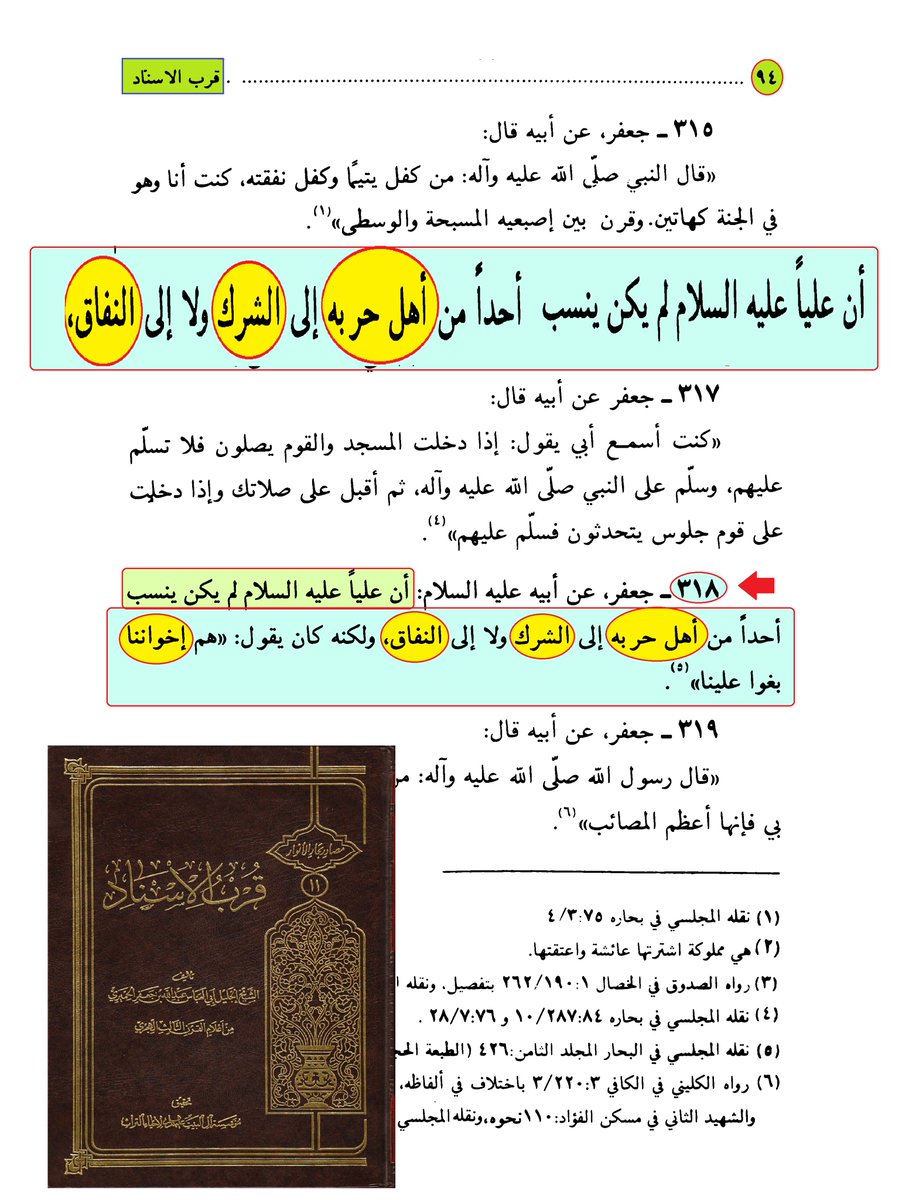 ٩٤ ........ قرب الاسناد
٣١٥ ـ جعفر، عن أبيه قال:
«قال النبي صلّى الله عليه وآله: من كفل يتيمًا وكفل نفقته، كنت أنا وهو
في الجنة كهاتين. وقرن بين إصبعيه المسبحة والوسطى»(١).
أن علياً عليه السلام لم يكن ينسب أحداً من أهل حربه إلى الشرك ولا إلى النفاق،
٣١٧ ـ جعفر عن أبيه قال:
«كنت أسمع أبي يقول: إذا دخلت المسجد والقوم يصلون فلا تسلّم
عليهم، وسلّم على النبي صلّى الله عليه وآله، ثم أقبل على صلاتك وإذا دخلت
على قوم جلوس يتحدثون فسلّم عليهم»(٤).
٣١٨ ـ جعفر، عن أبيه عليه السلام: أن علياً عليه السلام لم يكن ينسب
أحداً من أهل حربه إلى الشرك ولا إلى النفاق، ولكنه كان يقول: «هم إخواننا
بغوا علينا»(٥).
٣١٩ ـ جعفر، عن أبيه قال:
«قال رسول الله صلّى الله عليه وآله:
بي فإنها أعظم المصائب»(٦).
(١) نقله المجلسي في بحاره ٧٥:٤/٣
(٢) هي مملوكة اشترتها عائشة واعتقتها.
(٣) رواه الصدوق في الخصال ١:١٩٠/٢٦٢ بتفصيل، ونقله
(٤) نقله المجلسي في بحاره ٨٤:٢٨٧/١٠ و ٧٦:٢٨/٧ .
(٥) نقله المجلسي في البحار المجلد الثامن:٤٢٦ (الطبعة
(٦) رواه الكليني في الكافي ٣:٢٢٠/٣ باختلاف في ألفاظه،
والشهيد الثاني في مسكن الفؤاد:١١٠ نحوه، ونقله المجلسي
مصادر بحار الأنوار
١١
قرب الإسناد
تأليف
الشيخ الجليل أبي العباس عبد الله بن جعفر الحميري
من أعلام القرن الثالث الهجري
تحقيق
مؤسسة آل البيت عليهم السلام لإحياء التراث